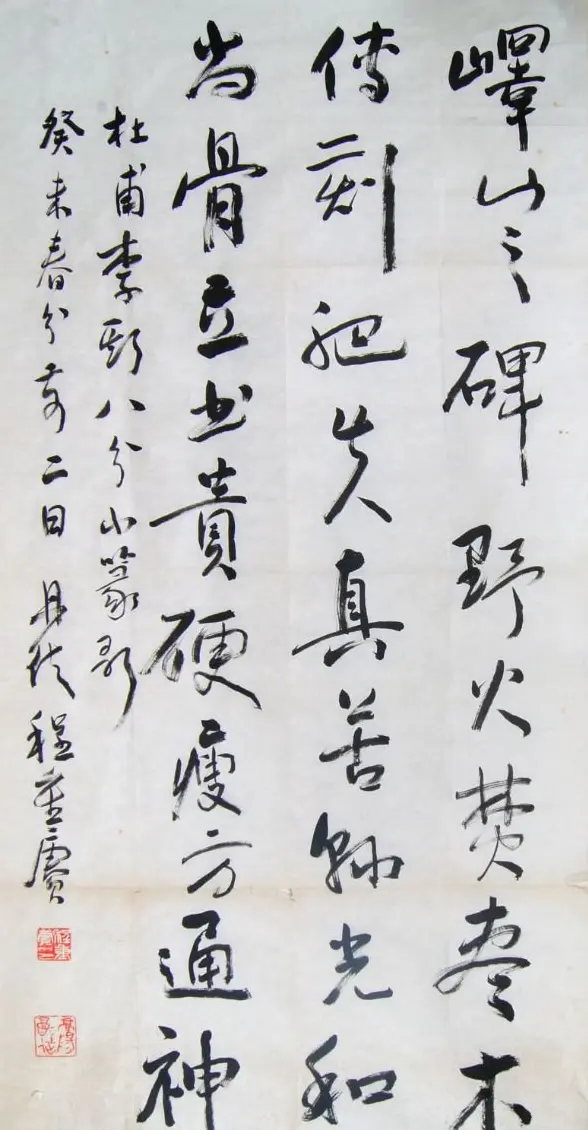 嶧山之碑野火焚枣木
傳刻肥失真苦縣光和
尚骨立書貴硬瘦方通神
杜甫李潮八分小篆歌
癸未春分前二日 丹徒程